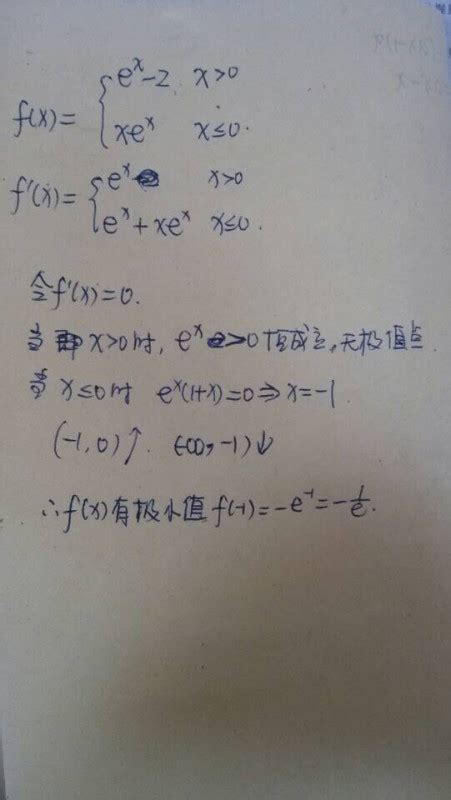 f(x)= { e^x-2, x>0
xe^x x≤0.
f'(x)= { e^x x>0
e^x+xe^x x≤0.
令f'(x)=0.
当 x>0时, e^x>0恒成立,无极值点
当 x≤0时 e^x(1+x)=0⇒x=-1
(-1,0)↑. (-∞,-1)↓
∴f(x)有极小值f(-1)=-e^-1=-1/e.